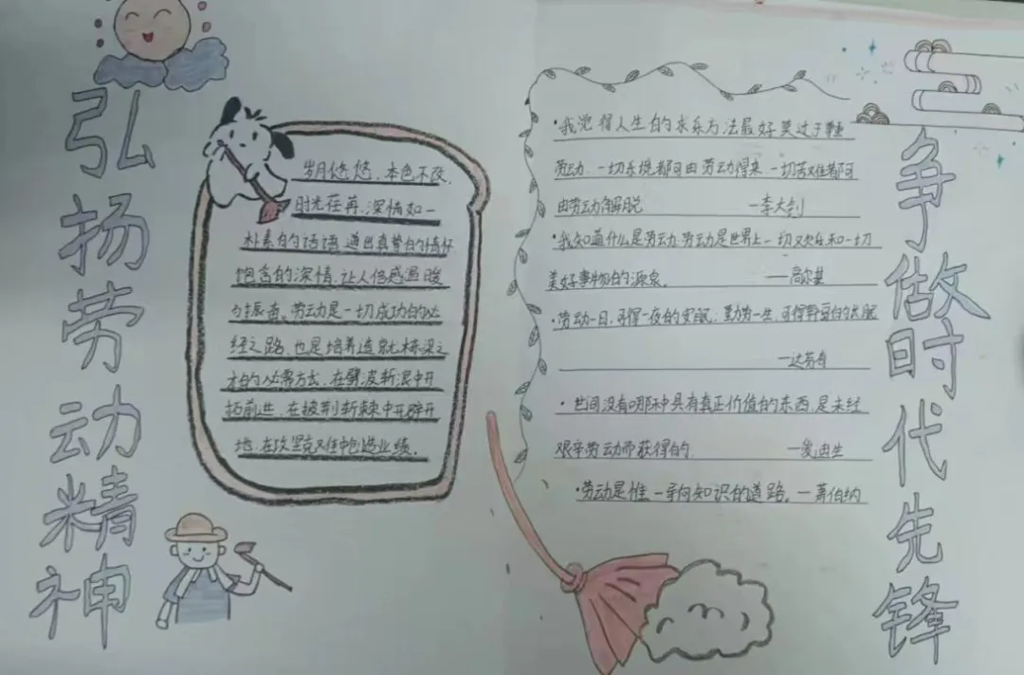 弘扬劳动精神
岁月悠悠,本色不改.
时光荏苒,深情如一
朴素的话语,道出真挚的情怀
饱含的深情,让人倍感温暖
与振奋。劳动是一切成功的必
经之路,也是培养造就栋梁之
才的必需方式,在劈波斩浪中开
拓前进,在披荆斩棘中开辟开
地,在攻坚克难中创造业绩。
·我觉得人生的求乐方法最好莫过于尊重
劳动.一切乐境都可由劳动得来,一切苦难都可
由劳动解脱 —李大钊
·我知道什么是劳动,劳动是世界上一切欢乐和一切
美好事物的源泉。 —高尔基
·劳动一日,可得一夜的安眠;勤劳一生,可得幸福的长眠
—达芬奇
·世间没有哪种具有真正价值的东西,是未经
艰辛劳动而获得的 —爱迪生
·劳动是惟一导向知识的道路。—萧伯纳
争做时代先锋